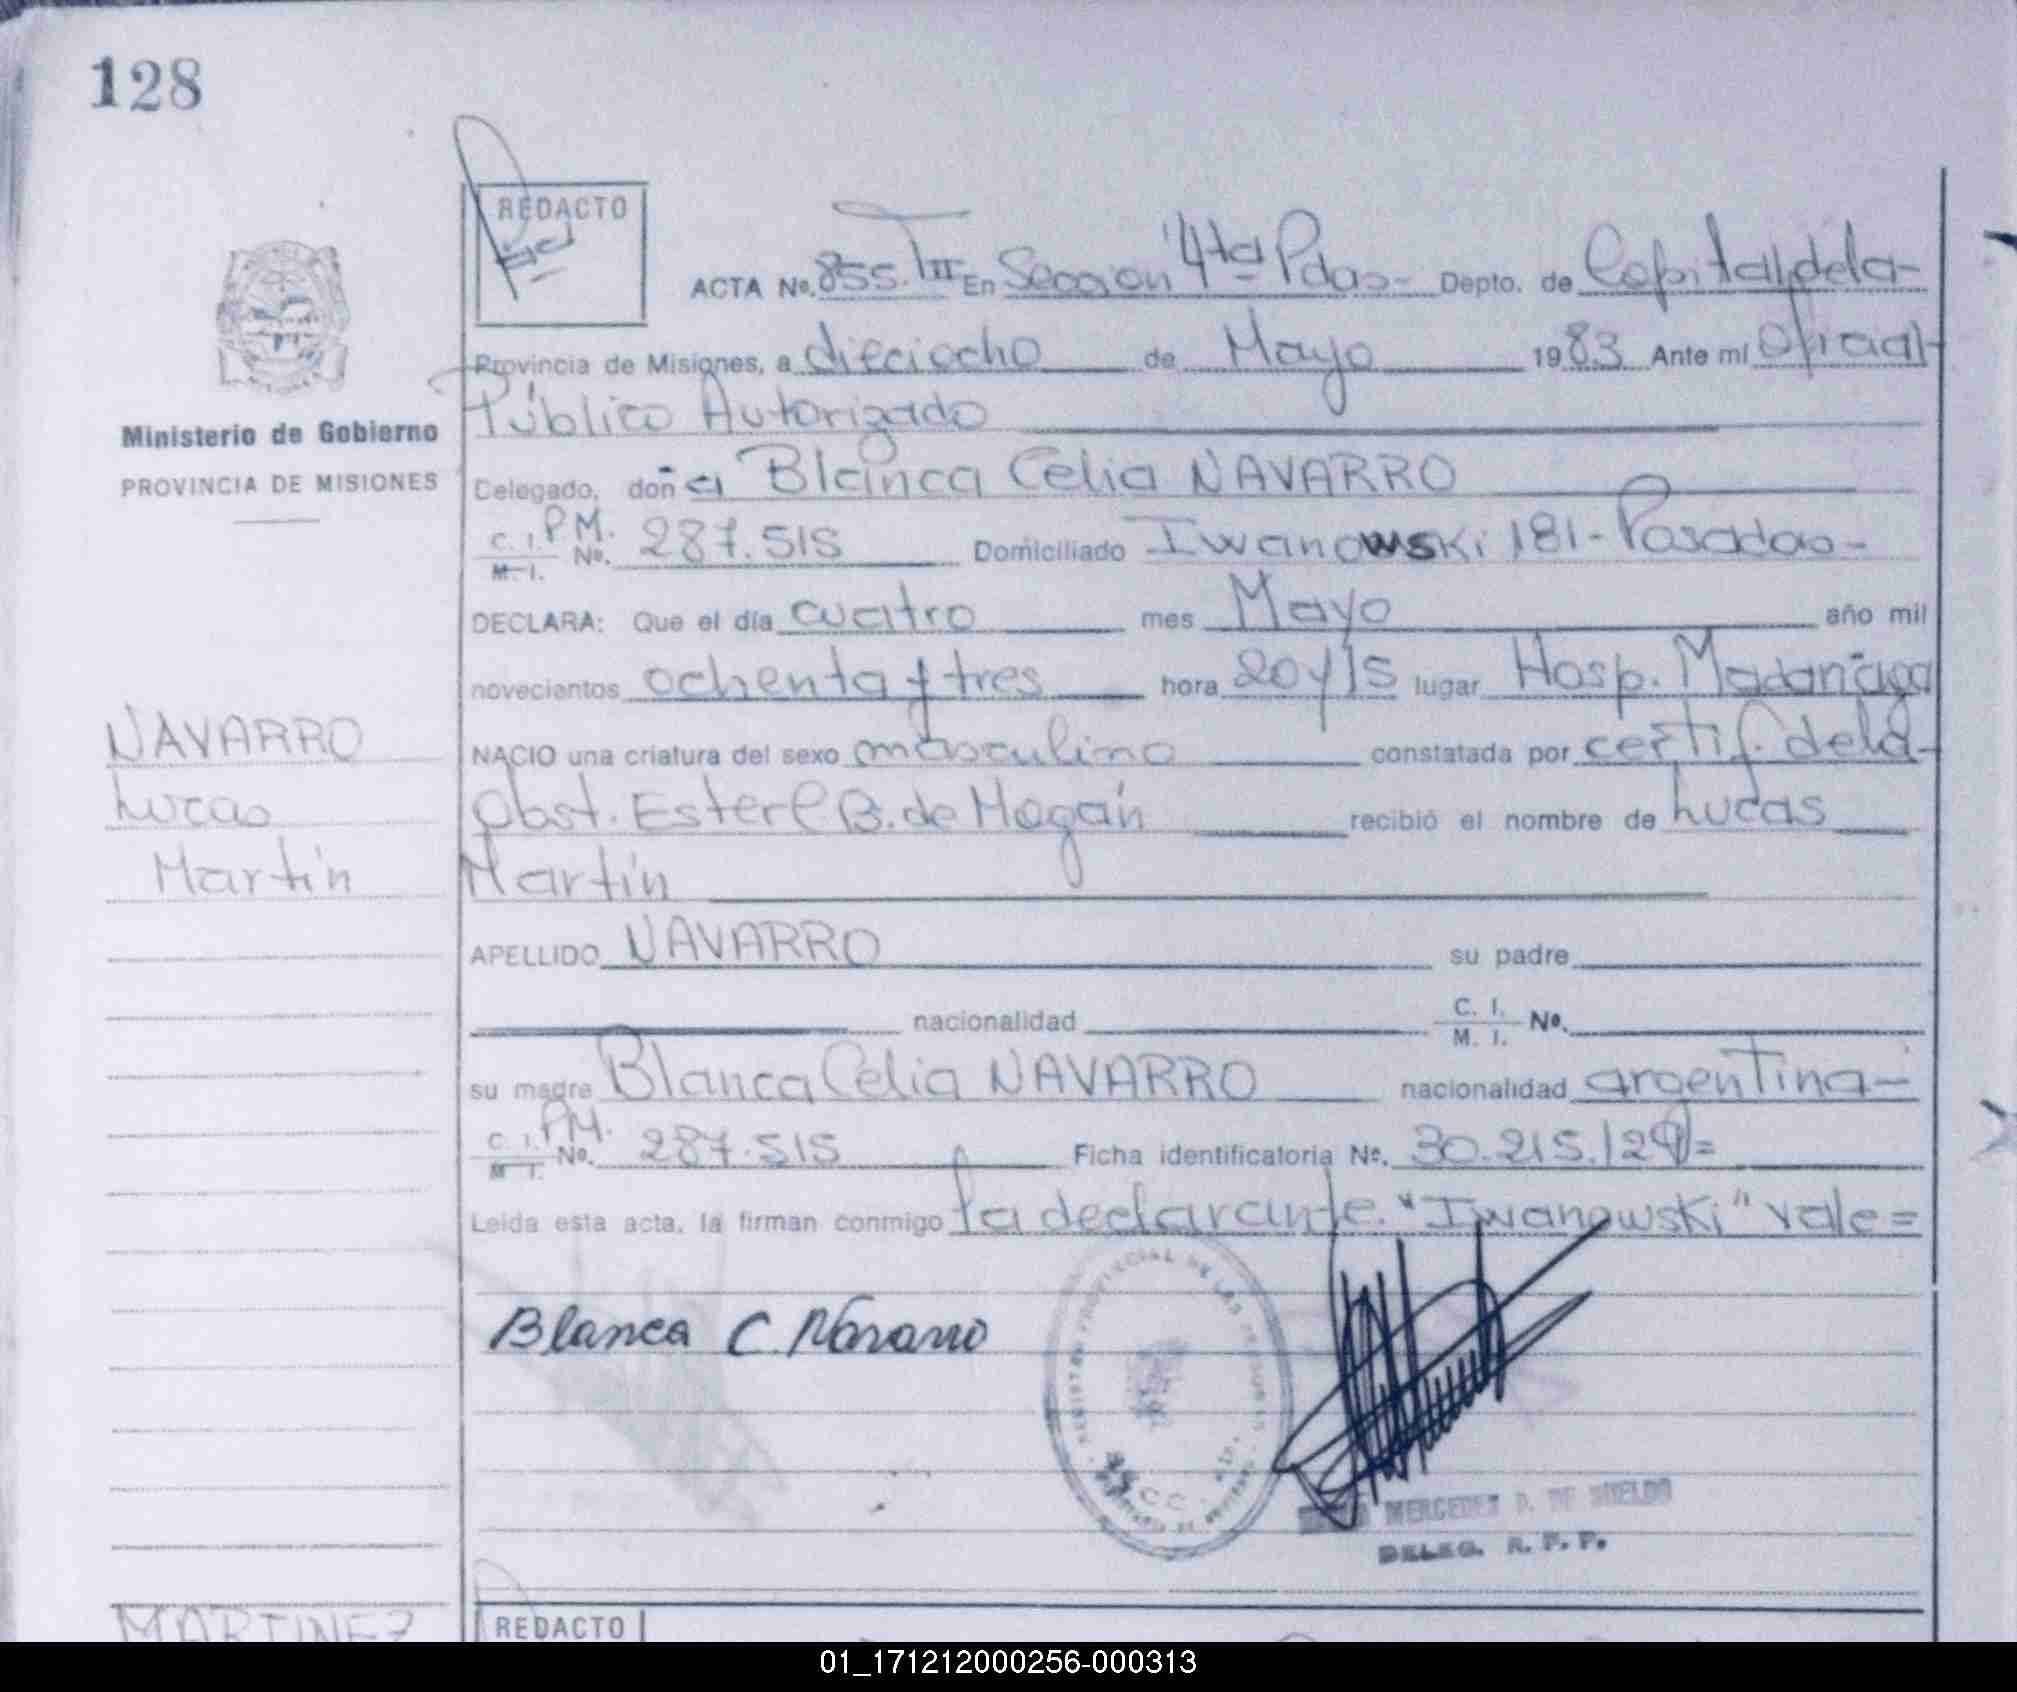 128
REDACTO
ACTA No. 855. TIII En Sección 4ta Pdas- Depto. de Capital, de la-
Provincia de Misiones, a dieciocho de Mayo 1983 Ante mí Oficial
Público Autorizado
Ministerio de Gobierno
PROVINCIA DE MISIONES
Delegado, doña Blanca Celia NAVARRO
C. I. P.M.
M. I. No. 287.515 Domiciliado Iwanowski 181- Posadas-
DECLARA: Que el día cuatro mes Mayo año mil
novecientos ochenta y tres hora 20 y 15 lugar Hosp. Madariaga
NAVARRO
Lucas
Martín
NACIO una criatura del sexo masculino constatada por certif. de la-
Obst. Ester B. de Hogan recibió el nombre de Lucas
Martín
APELLIDO NAVARRO su padre
nacionalidad C. I.
M. I. No.
su madre Blanca Celia NAVARRO nacionalidad argentina-
C. I. P.M.
M. I. No. 287.515 Ficha identificatoria No. 30.215.129=
Leída esta acta, la firman conmigo la declarante. "Iwanowski" vale=
Blanca C. Navarro
MERCEDES D. DE
DELEG. R. P. P.
MARTINEZ
REDACTO
01_171212000256-000313